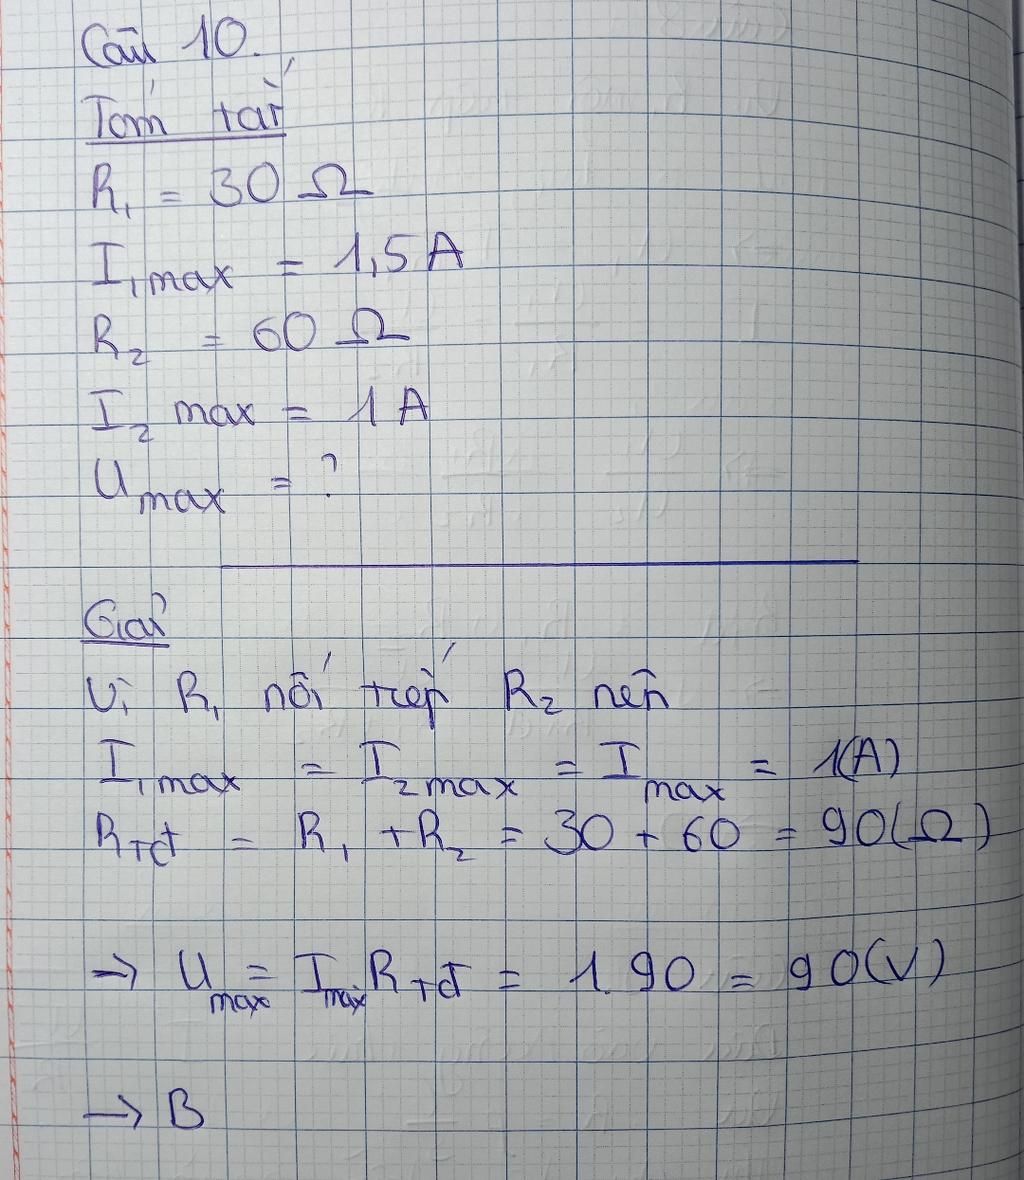 Câu 10.
Tóm tắt
R₁ = 30 Ω
I₁max = 1,5 A
R₂ = 60 Ω
I₂ max = 1 A
Umax = ?
Giải
Vì R₁ nối tiếp R₂ nên
I₁max = I₂max = Imax = 1(A)
RTđ = R₁ + R₂ = 30 + 60 = 90(Ω)
→ Umax = Imax.RTđ = 1.90 = 90(V)
→ B